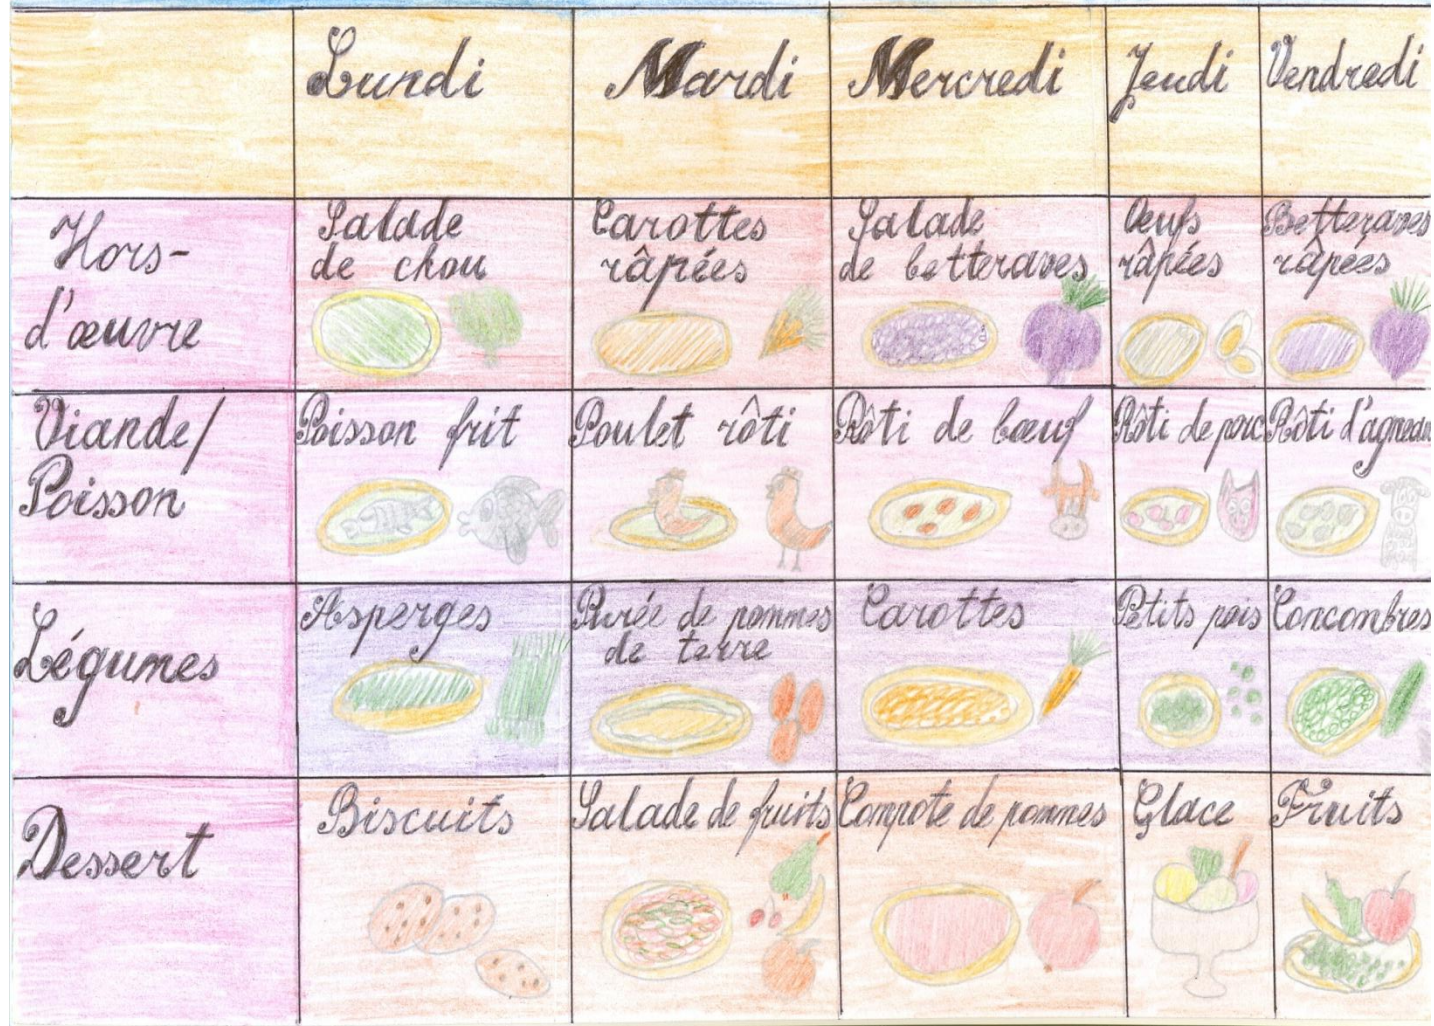 Lundi Mardi Mercredi Jeudi Vendredi
Hors-
d'œuvre
Salade
de chou
Carottes
râpées
Salade
de betteraves
Œufs
râpées
Betteraves
râpées
Viande/
Poisson
Poisson frit
Poulet rôti
Rôti de bœuf
Rôti de porc
Rôti d'agneau
Légumes
Asperges
Purée de pommes
de terre
Carottes
Petits pois
Concombres
Dessert
Biscuits
Salade de fruits
Compote de pommes
Glace
Fruits